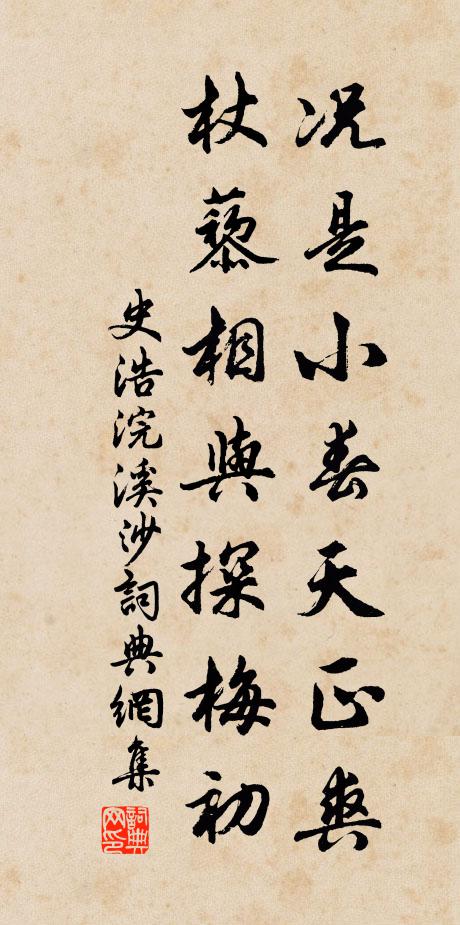 况是小春天正爽
杖藜相與探梅初
史浩浣溪沙詞典網集
詞典網印